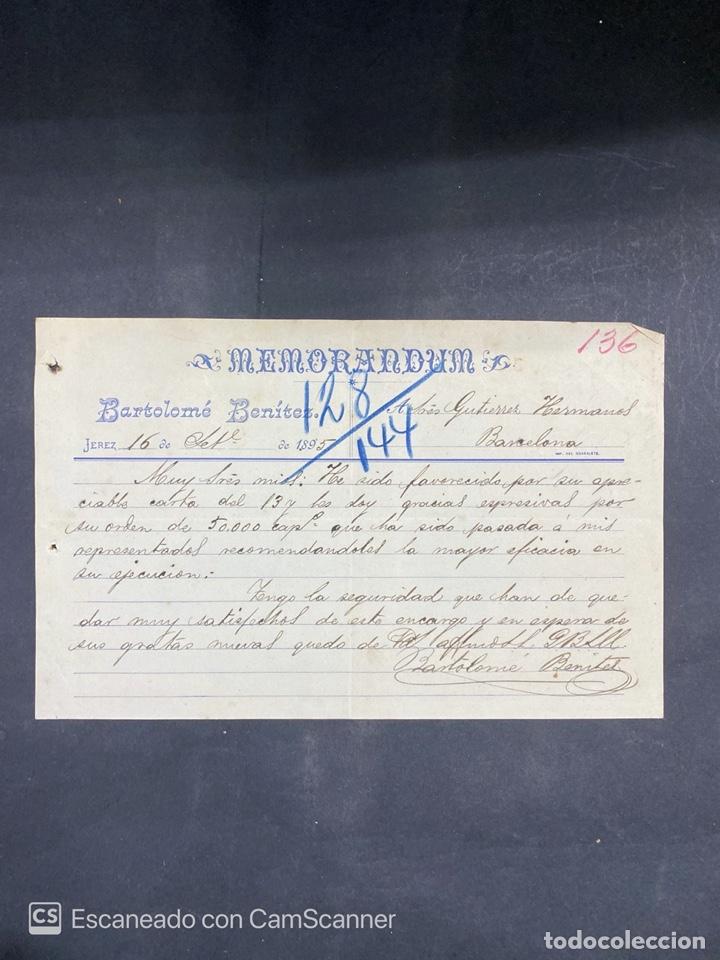 136
MEMORANDUM
Bartolomé Benítez.
128
144
A Sres Gutierrez Hermanos
JEREZ 16 de Set.e de 1895
Barcelona
IMP. DEL GUADALETE.
Muy Sres mios: He sido favorecido por su apre-
ciable carta del 13 y les doy gracias espresivas por
su orden de 50.000 cap.s que ha sido pasada á mis
representados recomendandoles la mayor eficacia en
su ejecucion:
Tengo la seguridad que han de que-
dar muy satisfechos de este encargo y en espera de
sus gratas nuevas quedo de Vds
Bartolomé Benitez
CS Escaneado con CamScanner
todocoleccion